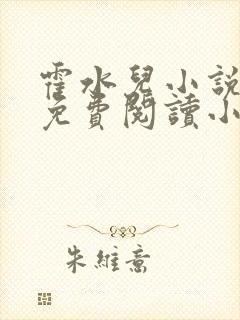 霍水兒小說
免費閱讀小
朱維意